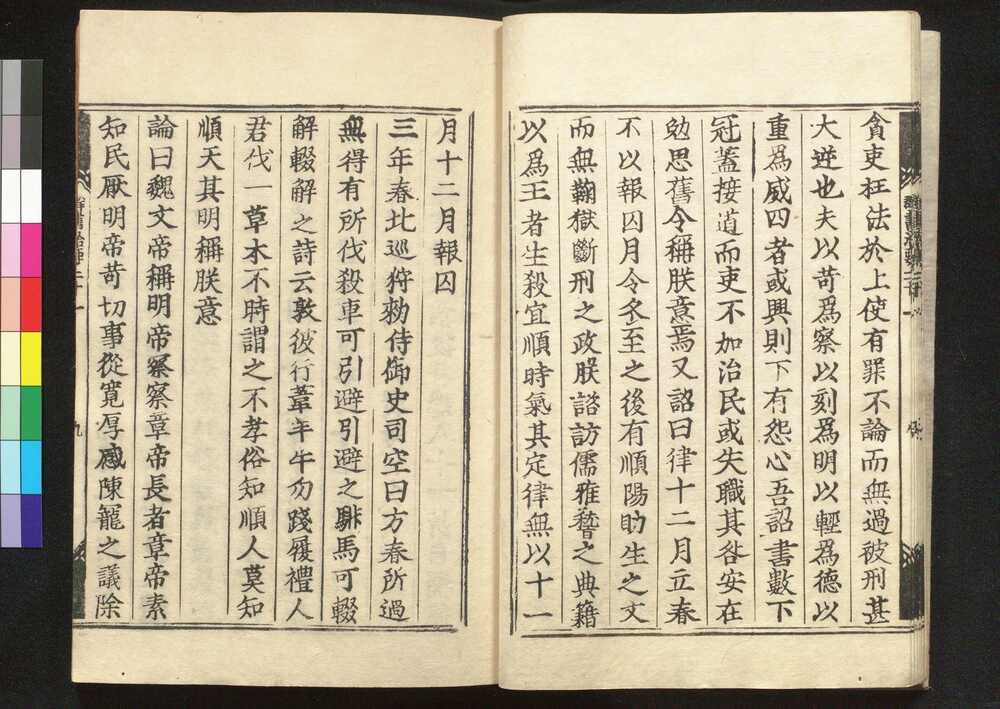 貪吏枉法於上使有罪不論而無過被刑甚
大逆也夫以苛爲察以刻爲明以輕爲德以
重爲威四者或興則下有怨心吾詔書數下
冠蓋接道而吏不加治民或失職其咎安在
勉思舊令稱朕意焉又詔曰律十二月立春
不以報囚月令冬至之後有順陽助生之文
而無鞫獄斷刑之政朕諮訪儒雅稽之典籍
以爲王者生殺宜順時氣其定律無以十一
月十二月報囚
三年春北巡狩勑侍御史司空曰方春所過
無得有所伐殺車可引避引避之騑馬可輟
解輟解之詩云敦彼行葦牛牛勿踐履禮人
君伐一草木不時謂之不孝俗知順人莫知
順天其明稱朕意
論曰魏文帝稱明帝察察章帝長者章帝素
知民厭明帝苛切事從寬厚感陳寵之議除
九